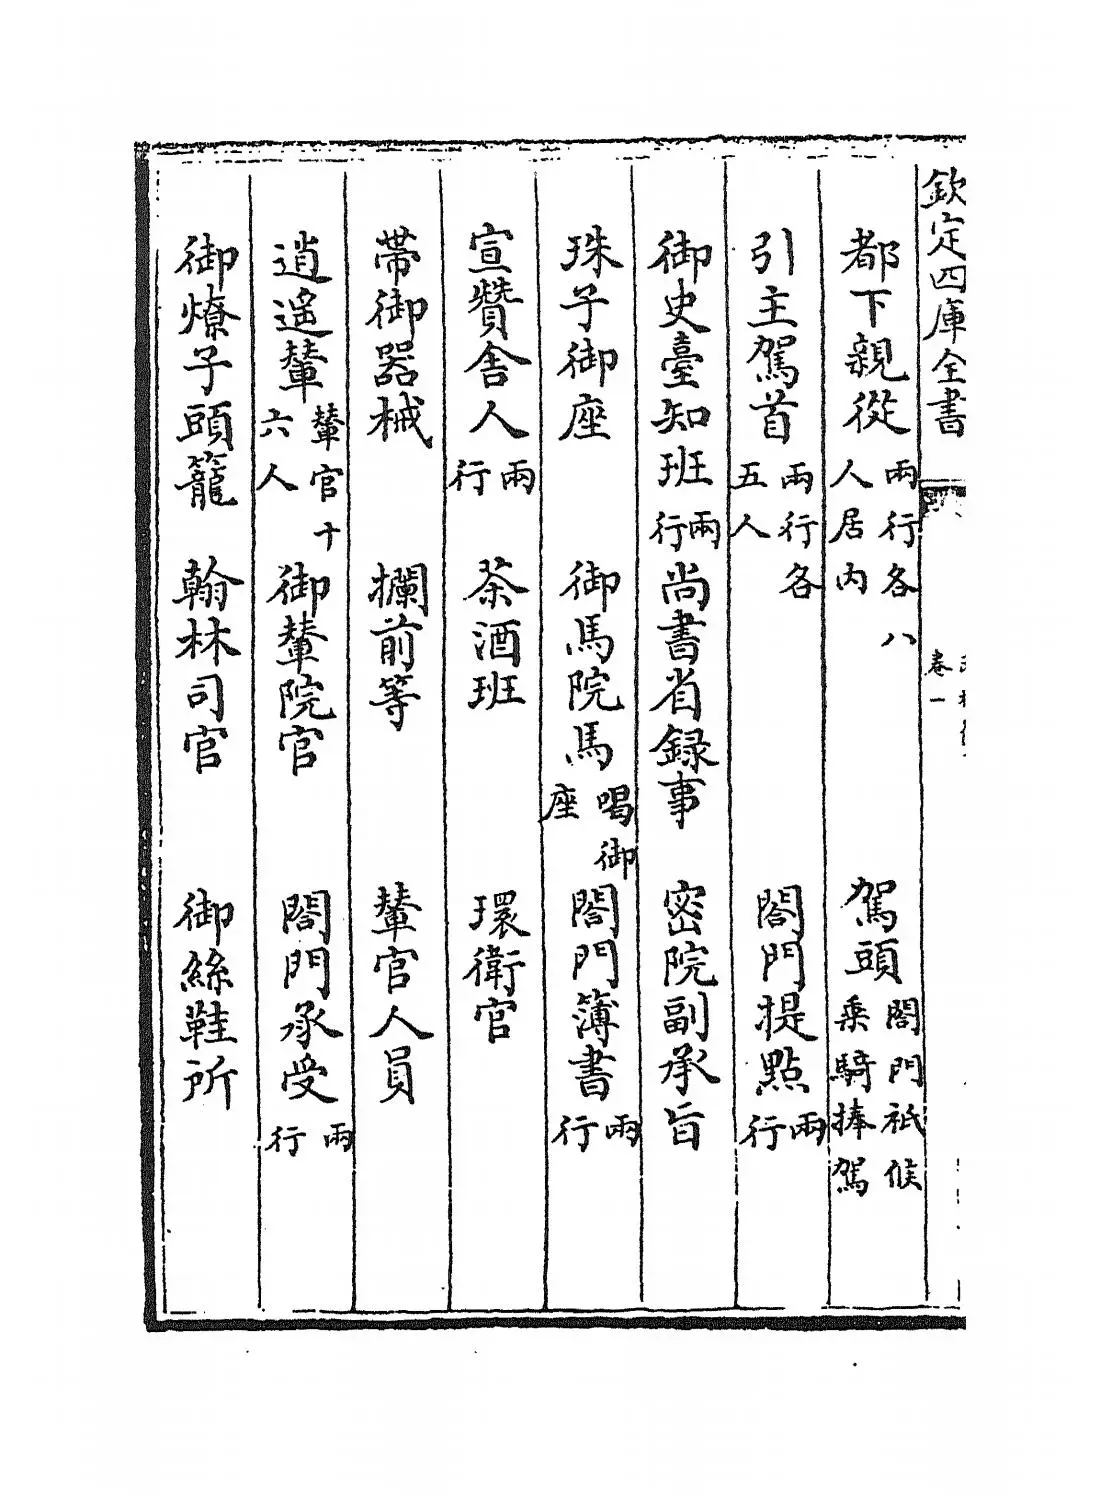 欽定四庫全書
卷一
都下親從兩行各八人居內 駕頭閤門祗候乘騎捧駕
引主駕首兩行各五人 閤門提點兩行
御史臺知班兩行 尚書省録事 密院副承旨
珠子御座 御馬院馬喝御座 閤門簿書兩行
宣贊舎人兩行 茶酒班 環衛官
帶御器械 攔前等 輦官人員
逍遙輦輦官十六人 御輦院官 閤門承受兩行
御燎子頭籠 翰林司官 御絲鞋所